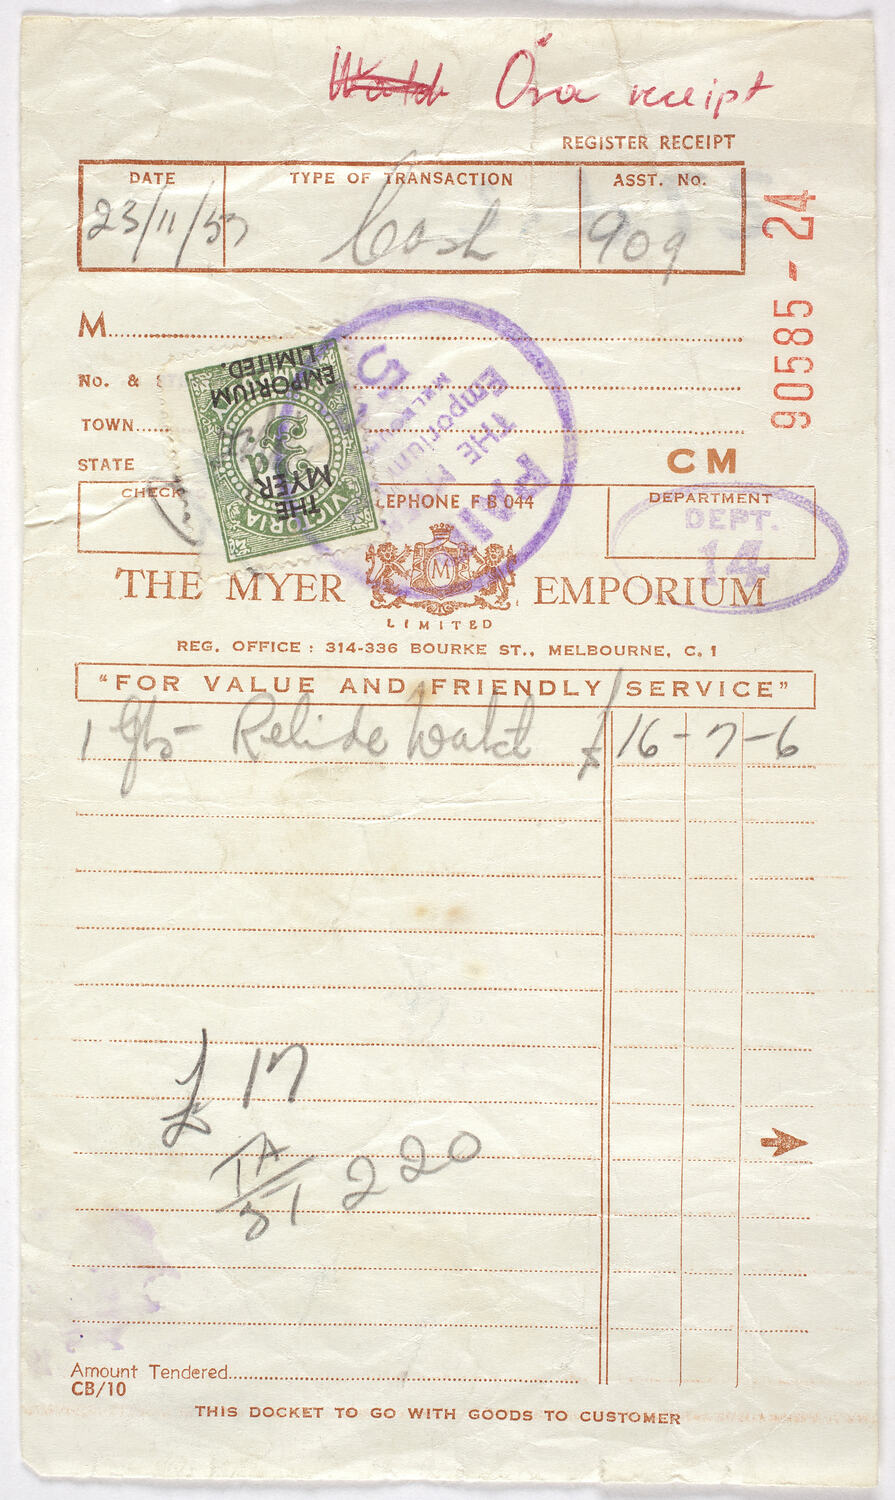 Watch Öra receipt
REGISTER RECEIPT
DATE TYPE OF TRANSACTION ASST. No.
23/11/57 Cash 909
90585 - 24
M
No. & S
TOWN
STATE
CM
THE MYER EMPORIUM LIMITED.
3d
VICTORIA
PAID
THE MYER
Emporium
MELBOURNE
CHECK
TELEPHONE F B 044
DEPARTMENT
DEPT.
14
THE MYER M EMPORIUM
LIMITED
REG. OFFICE : 314-336 BOURKE ST., MELBOURNE, C. 1
"FOR VALUE AND FRIENDLY SERVICE"
1 Gts Relide Watch £ 16 - 7 - 6
£ 17
220
Amount Tendered
CB/10
THIS DOCKET TO GO WITH GOODS TO CUSTOMER